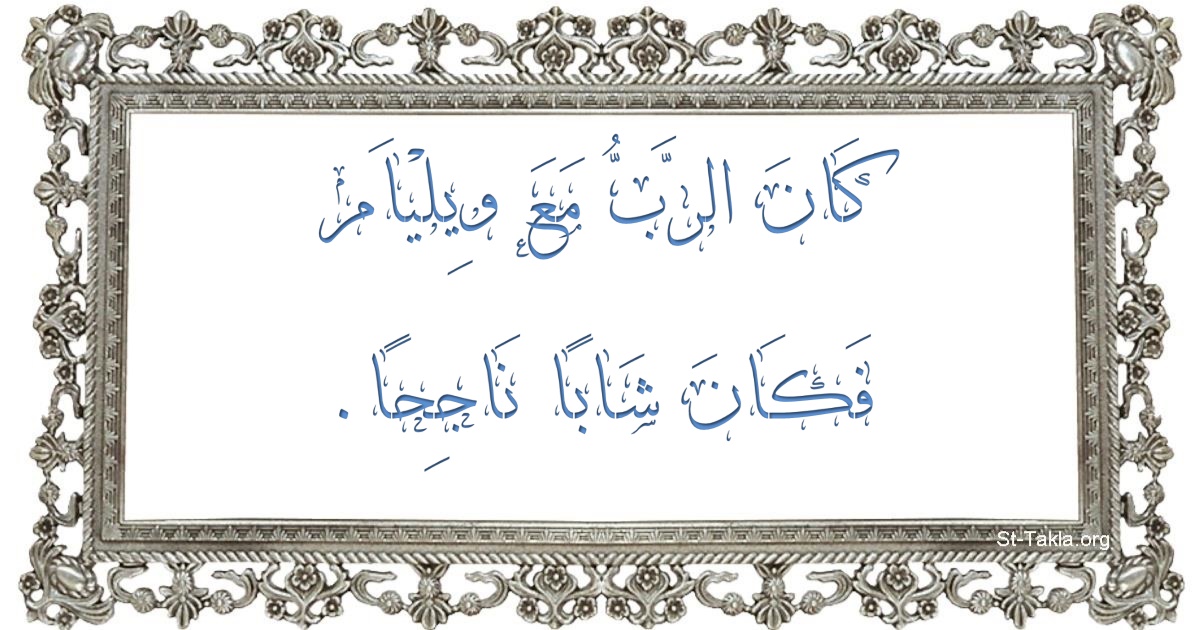 كَانَ الرَّبُّ مَعَ ويِلْيَامْ
فَكَانَ شَابًا نَاجِحًا .
St-Takla.org